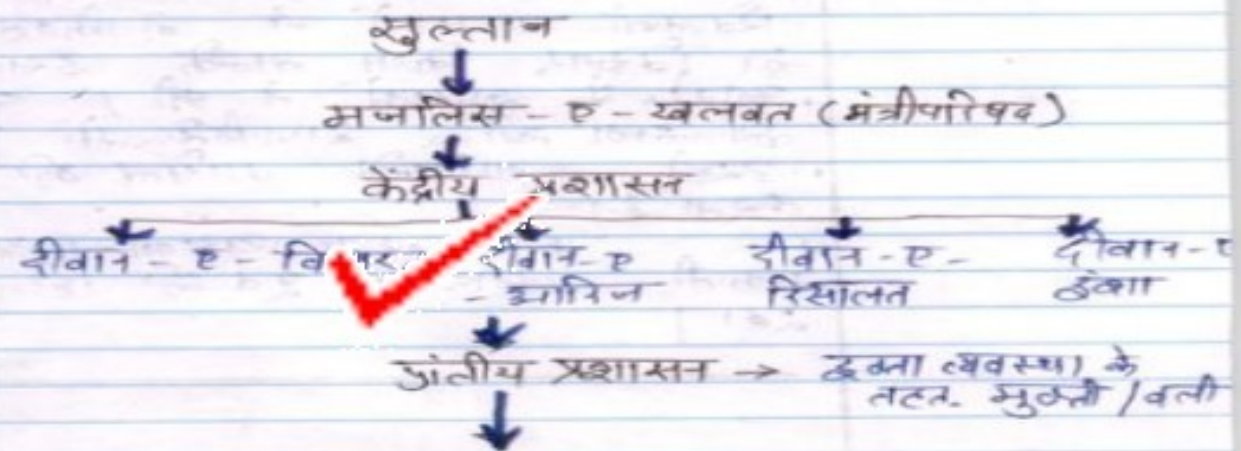 सुल्तान
मजलिस - ए - खलवत (मंत्रीपरिषद)
केंद्रीय प्रशासन
दीवान - ए - दीवान-ए दीवान - ए - दीवान-ए
- आरिज रिसालत इंशा
प्रांतीय प्रशासन → इक्ता व्यवस्था के
तहत. मुक्ती / वली